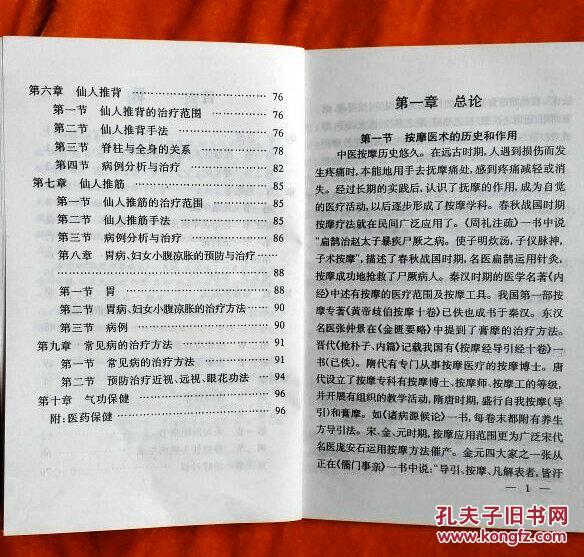 第六章 仙人推背 …………………… 76
第一节 仙人推背的治疗范围 ………… 76
第二节 仙人推背手法 ……………… 76
第三节 脊柱与全身的关系 ………… 78
第四节 病例分析与治疗 …………… 82
第七章 仙人推筋 …………………… 85
第一节 仙人推筋的治疗范围 ……… 85
第二节 仙人推筋手法 ……………… 85
第三节 病例分析与治疗 …………… 86
第八章 胃病、妇女小腹凉胀的预防与治疗 ……
…………………… 88
第一节 胃 …………………… 88
第二节 胃病、妇女小腹凉胀的治疗方法 …… 90
第三节 病例 …………………… 90
第九章 常见病的治疗方法 …………… 91
第一节 常见病的治疗方法 ………… 91
第二节 预防治疗近视、远视、眼花功法 …… 94
第十章 气功保健 …………………… 96
附:医药保健 …………………… 96
第一章 总论
第一节 按摩医术的历史和作用
中医按摩历史悠久。在远古时期,人遇到损伤而发
生疼痛时,本能地用手去抚摩痛处,感到疼痛减轻或消
失。经过长期的实践后,认识了抚摩的作用,成为自觉
的医疗活动,以后逐步形成了按摩学科。春秋战国时期
按摩疗法就在民间广泛应用了。《周礼注疏》一书中说
“扁鹊治赵太子暴疾尸厥之病。使子明炊汤,子仪脉神,
子术按摩”,描述了春秋战国时期,名医扁鹊运用针灸、
按摩成功地抢救了尸厥病人。秦汉时期的医学名著《内
经》中述有按摩的医疗范围及按摩工具。我国第一部按
摩专著《黄帝歧伯按摩十卷》已佚也成书于秦汉。东汉
名医张仲景在《金匮要略》中提到了膏摩的治疗方法。
晋代《抢朴子、内篇》记载我国有《按摩经导引经十卷》一
书(已佚)。隋代有专门从事按摩医疗的按摩博士。唐
代设立了按摩专科有按摩博士、按摩师、按摩工的等级,
并开展有组织的教学活动,隋唐时期,盛行自我按摩(导
引)和膏摩。如《诸病源候论》一书,每卷末都附有养生
方导引法。宋、金、元时期,按摩应用范围更为广泛宋代
名医庞安石运用按摩方法催产。金元四大家之一张从
正在《儒门事亲》一书中说:“导引、按摩、凡解表者,皆汗
— 1 —
孔夫子旧书网
www.kongfz.com